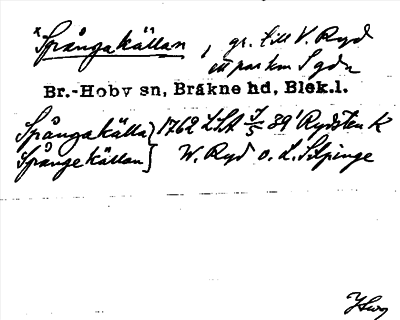 *Spångakällan, gr. till V. Ryd
ett par km S gdn
Br.-Hoby sn, Bräkne hd, Blek.l.
Spångakälla} 1762 LSA 7/5 89' Rydsten k
Spångekällan} W. Ryd o. L. Silpinge